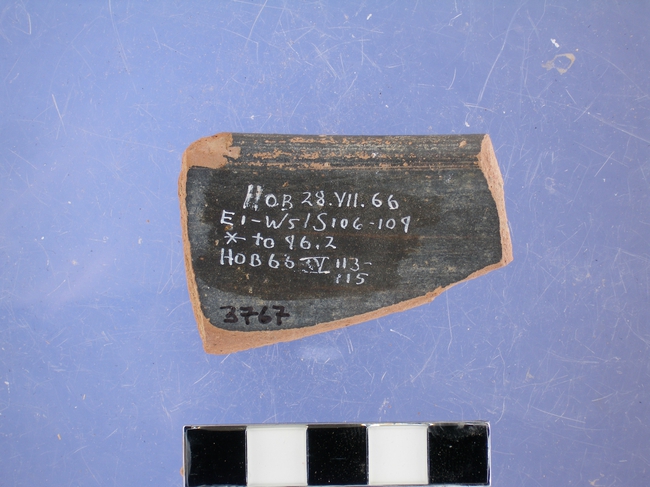 HOB 28.VII.66
E1-W5/S106-109
* to 96.2
HOB66 IV 113-
115
3767